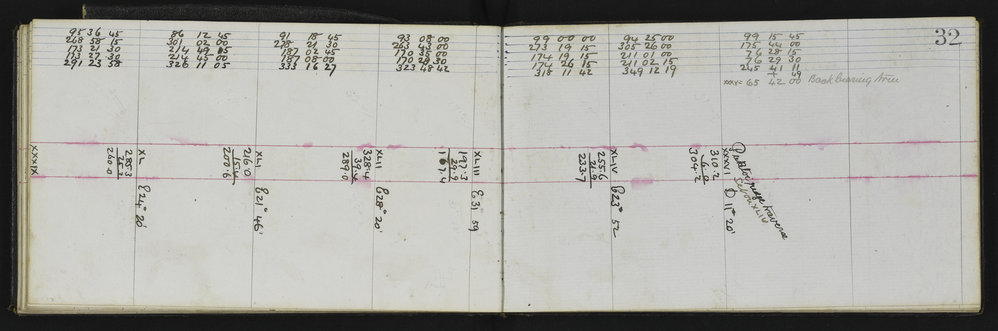 32
95 36 45
268 58 15
173 21 30
173 22 30
291 23 58
86 12 45
301 02 00
214 49 15
214 45 00
326 11 05
91 18 45
278 21 30
187 02 45
187 08 00
333 16 27
93 08 00
263 43 00
170 35 00
170 28 30
323 48 42
99 00 00
273 19 15
174 19 15
174 26 15
318 11 42
94 25 00
305 26 00
211 01 00
211 02 15
349 12 19
99 15 45
175 44 00
76 28 15
76 29 30
245 41 11
+ 49
XXXV = 65 42 00 Back bearing true
XXXIX
XL
285.3
25.3
260.0
E 24° 20'
XLI
216.0
15.4
200.6
E 21° 46'
XLII
328.4
39.4
289.0
E 28° 20'
XLIII
197.3
29.9
167.4
E 31° 59
XLIV
255.6
21.9
233.7
E 23° 52
traverse
XLIV
XXXVI
310.2
6.0
304.2
D 11° 20'